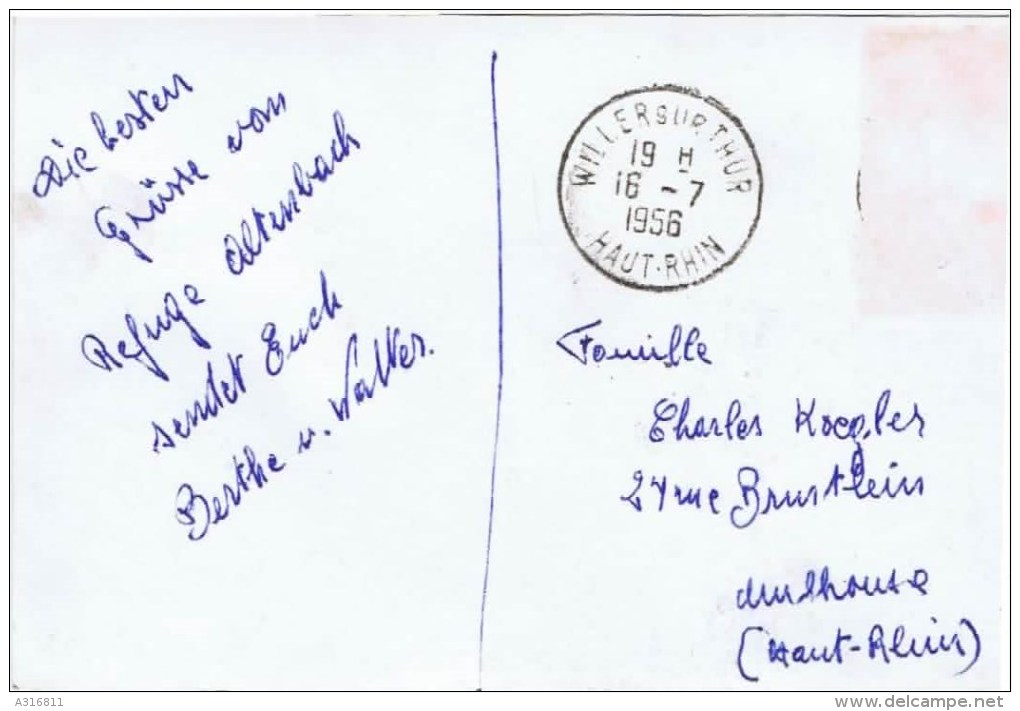 Die besten
Grüsse von
Refuge Altenbach
sendet Euch
Berthe u. Walter.
WILLER SUR THUR
19 H
16 - 7
1956
HAUT-RHIN
Famille
Charles Koegler
24 rue Brustlein
Mulhouse
(Haut-Rhin)
A316811
www.delcampe.net